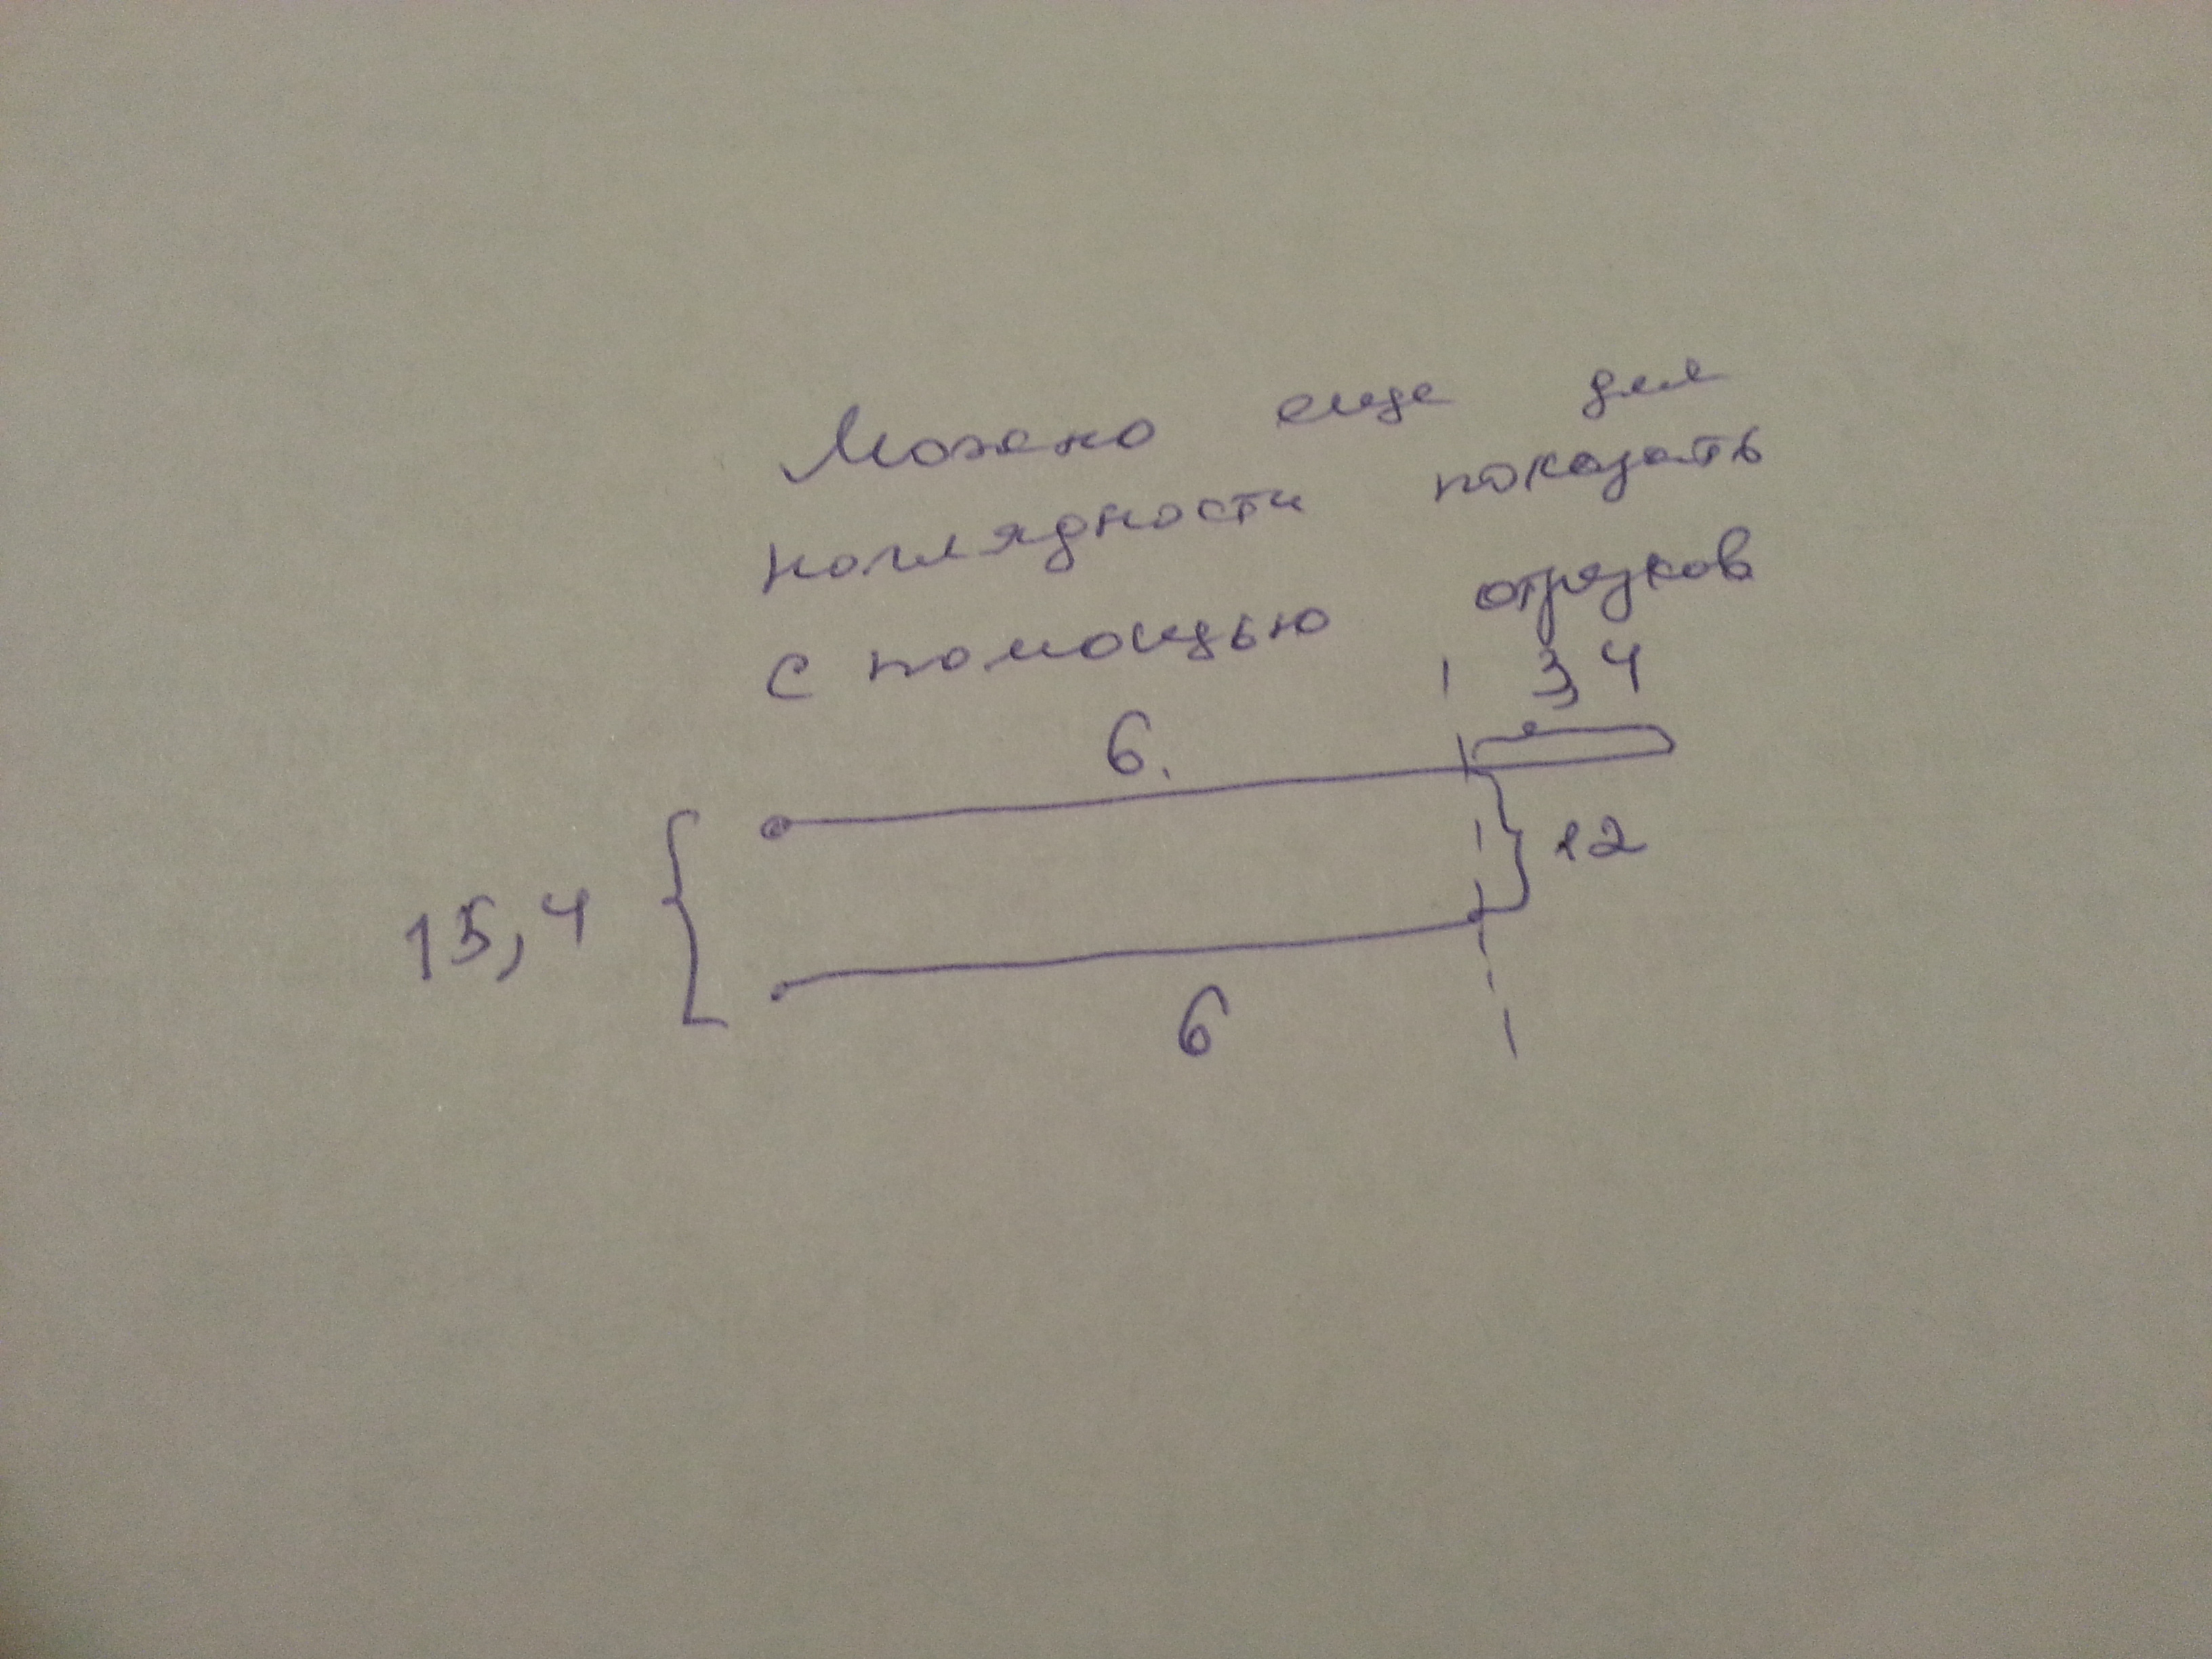 Можно еще для
наглядности показать
с помощью отрезков
3,4
6.
12
15,4
6